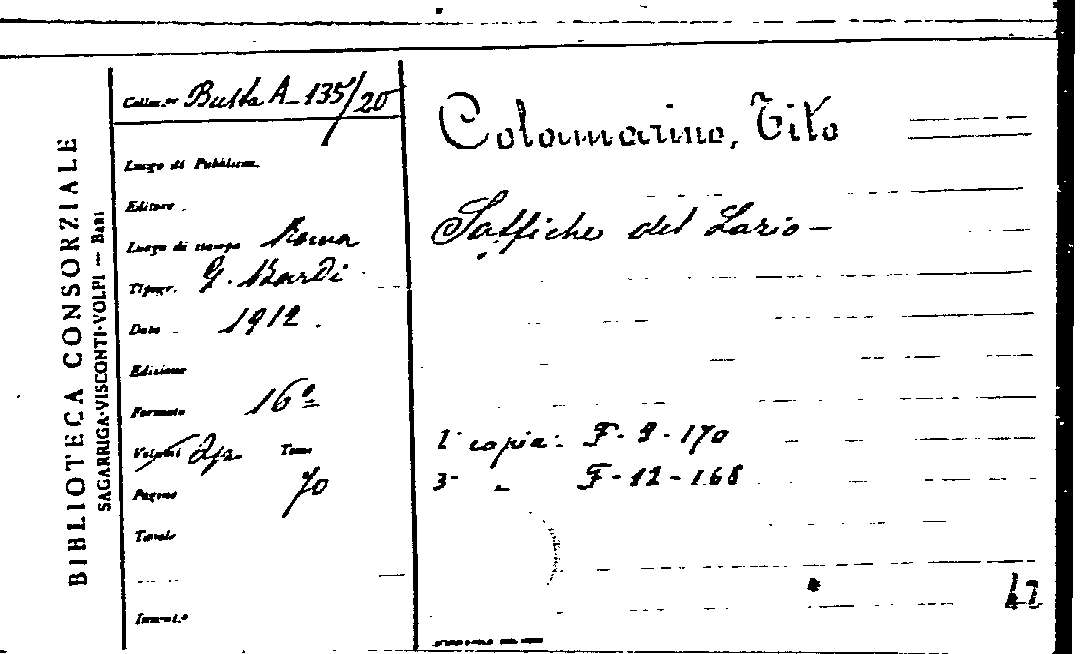 BIBLIOTECA CONSORZIALE
SAGARRIGA-VISCONTI-VOLPI — BARI
Colloc.ne Busta A-135/20
Luogo di Pubblicaz.
Editore
Luogo di stampa Roma
Tipogr. G. Bardi
Data 1912.
Edizione
Formato 16º
Volumi Op. Tomo
Pagine 70
Tavole
Invent.º
Colamarino, Tito
Saffiche del Lario –
copia: F-9-170
3- " F-12-168
42